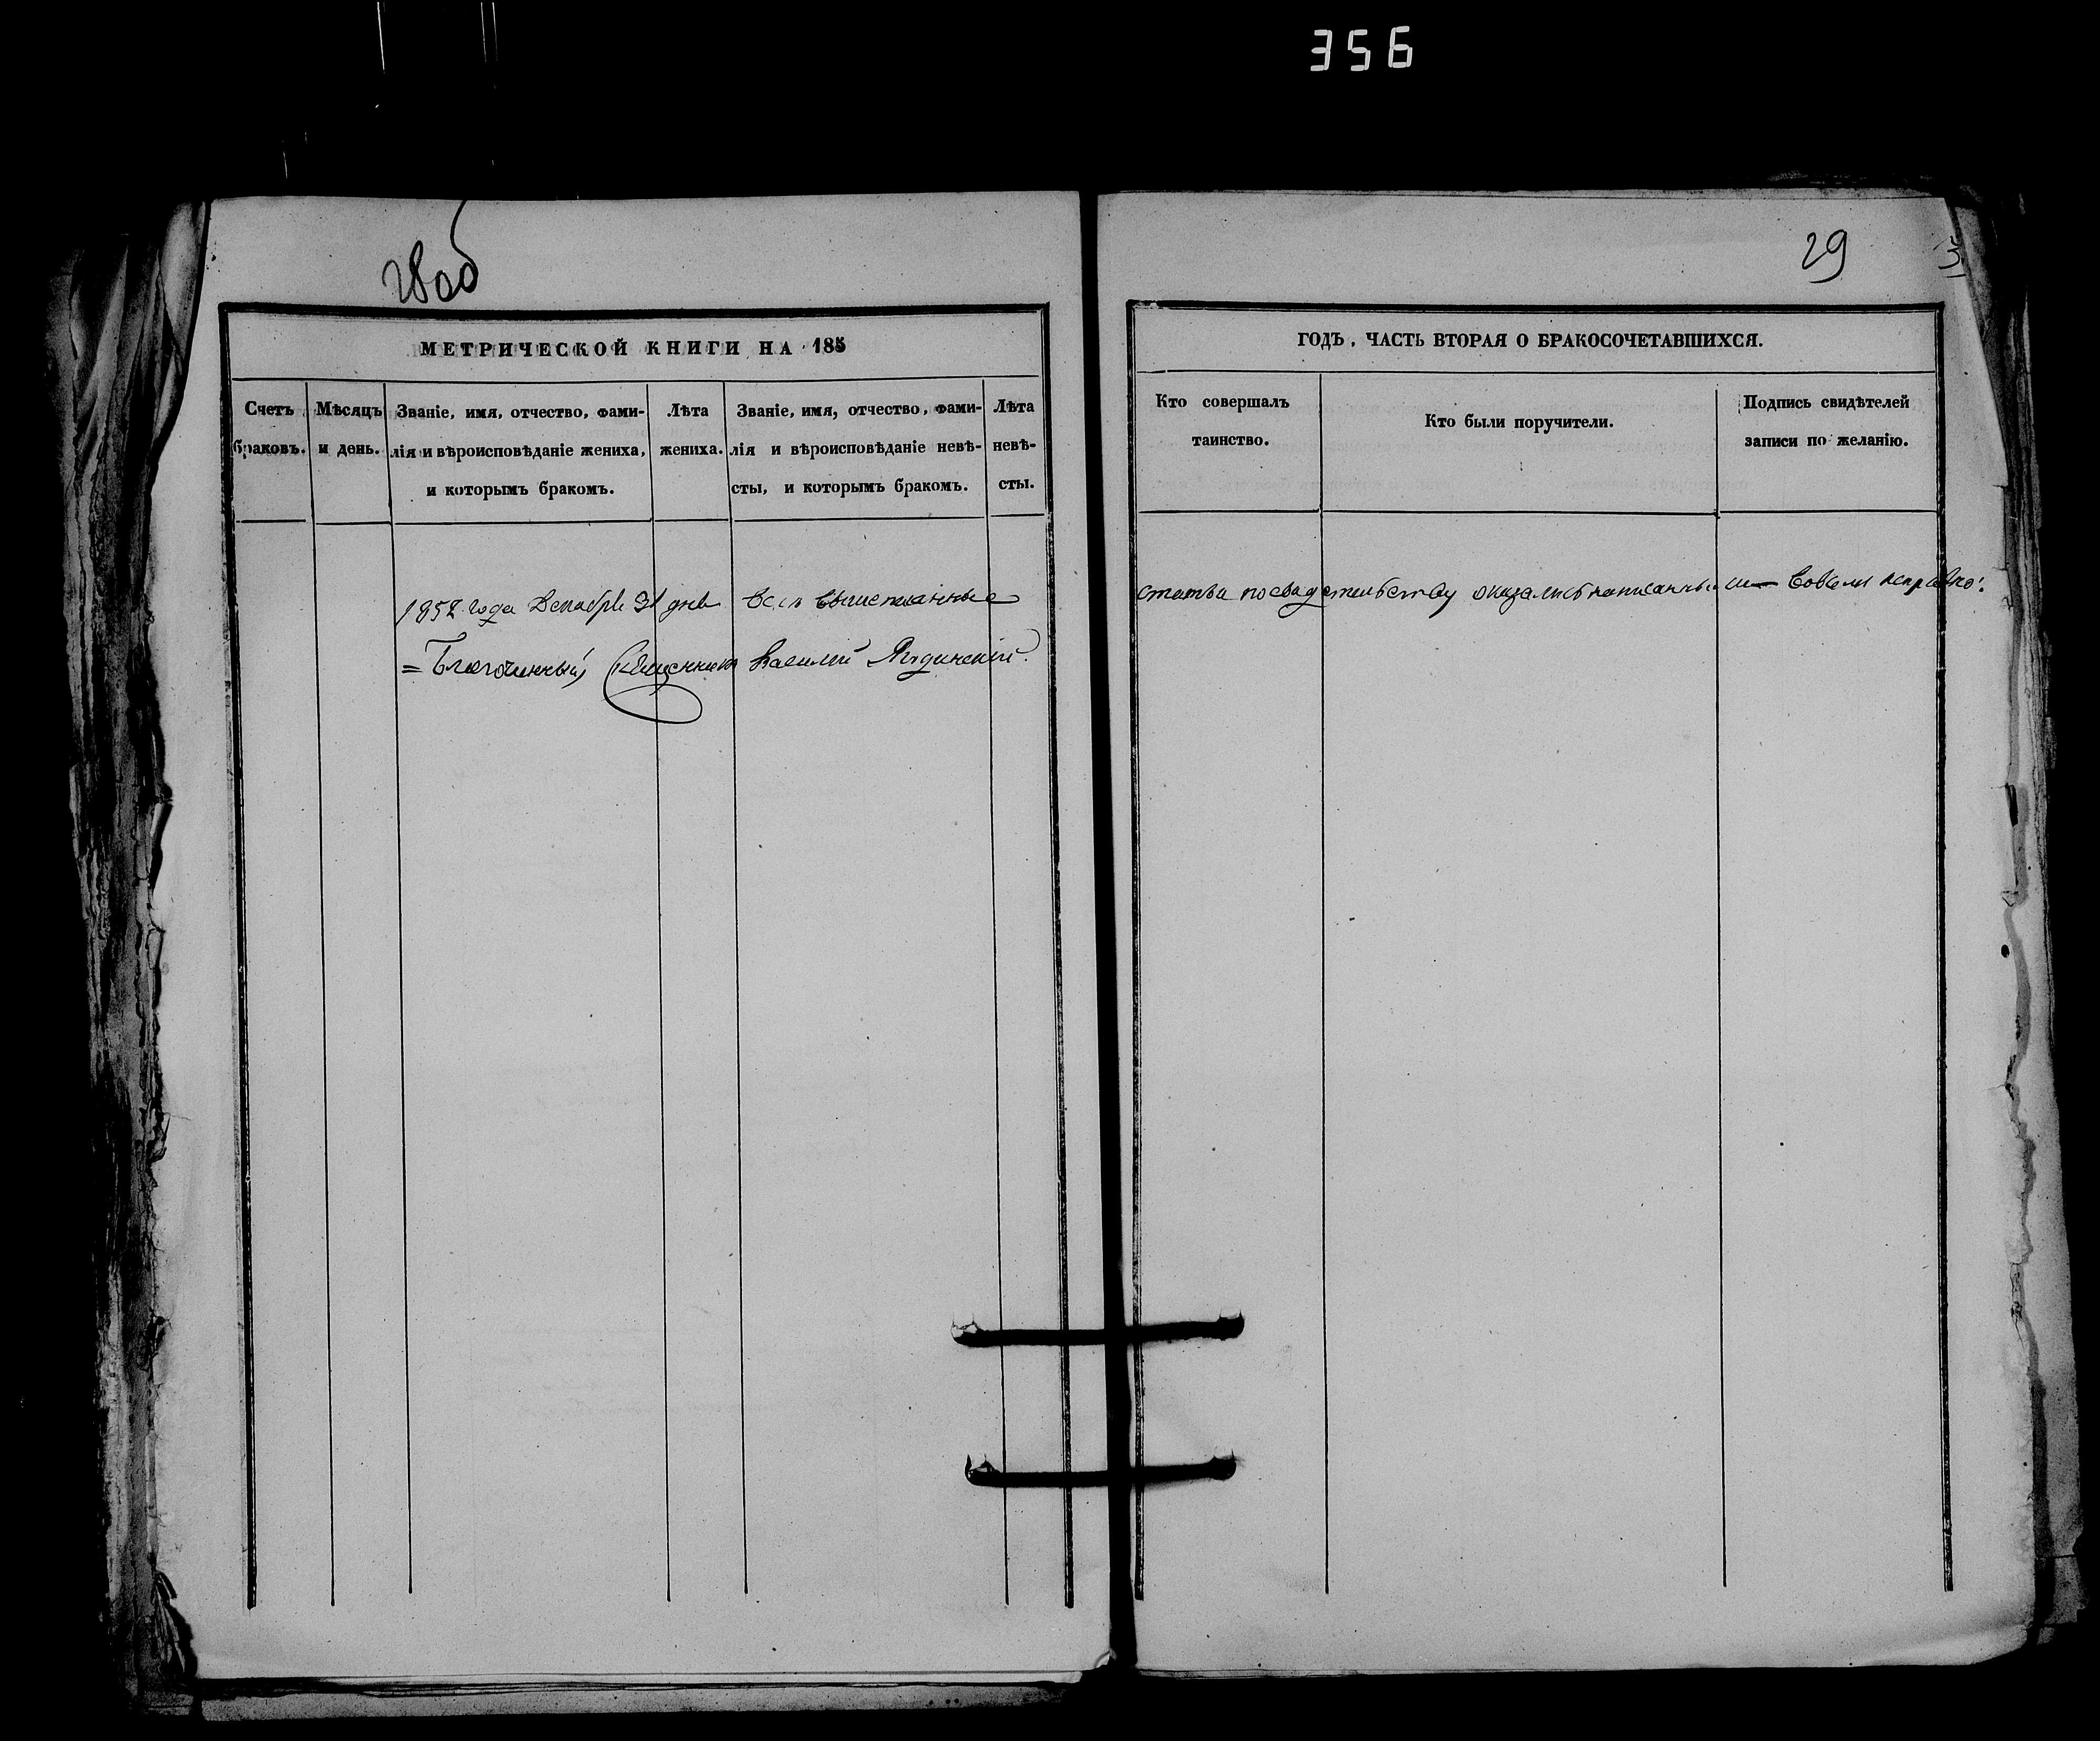 356
28об
29
МЕТРИЧЕСКОЙ КНИГИ НА 185
ГОДЪ, ЧАСТЬ ВТОРАЯ О БРАКОСОЧЕТАВШИХСЯ.
Счетъ браковъ.
Мѣсяцъ и день.
Званіе, имя, отчество, фами-
лія и вѣроисповѣданіе жениха,
и которымъ бракомъ.
Лѣта
жениха.
Званіе, имя, отчество, фами-
лія и вѣроисповѣданіе невѣ-
сты, и которымъ бракомъ.
Лѣта
невѣ-
сты.
Кто совершалъ
таинство.
Кто были поручители.
Подпись свидѣтелей
записи по желанію.
1852 года Декабря 31 дня всѣ вышеписанные статьи по свидетельству оказались написанными
= Благочинный, Священникъ Василій